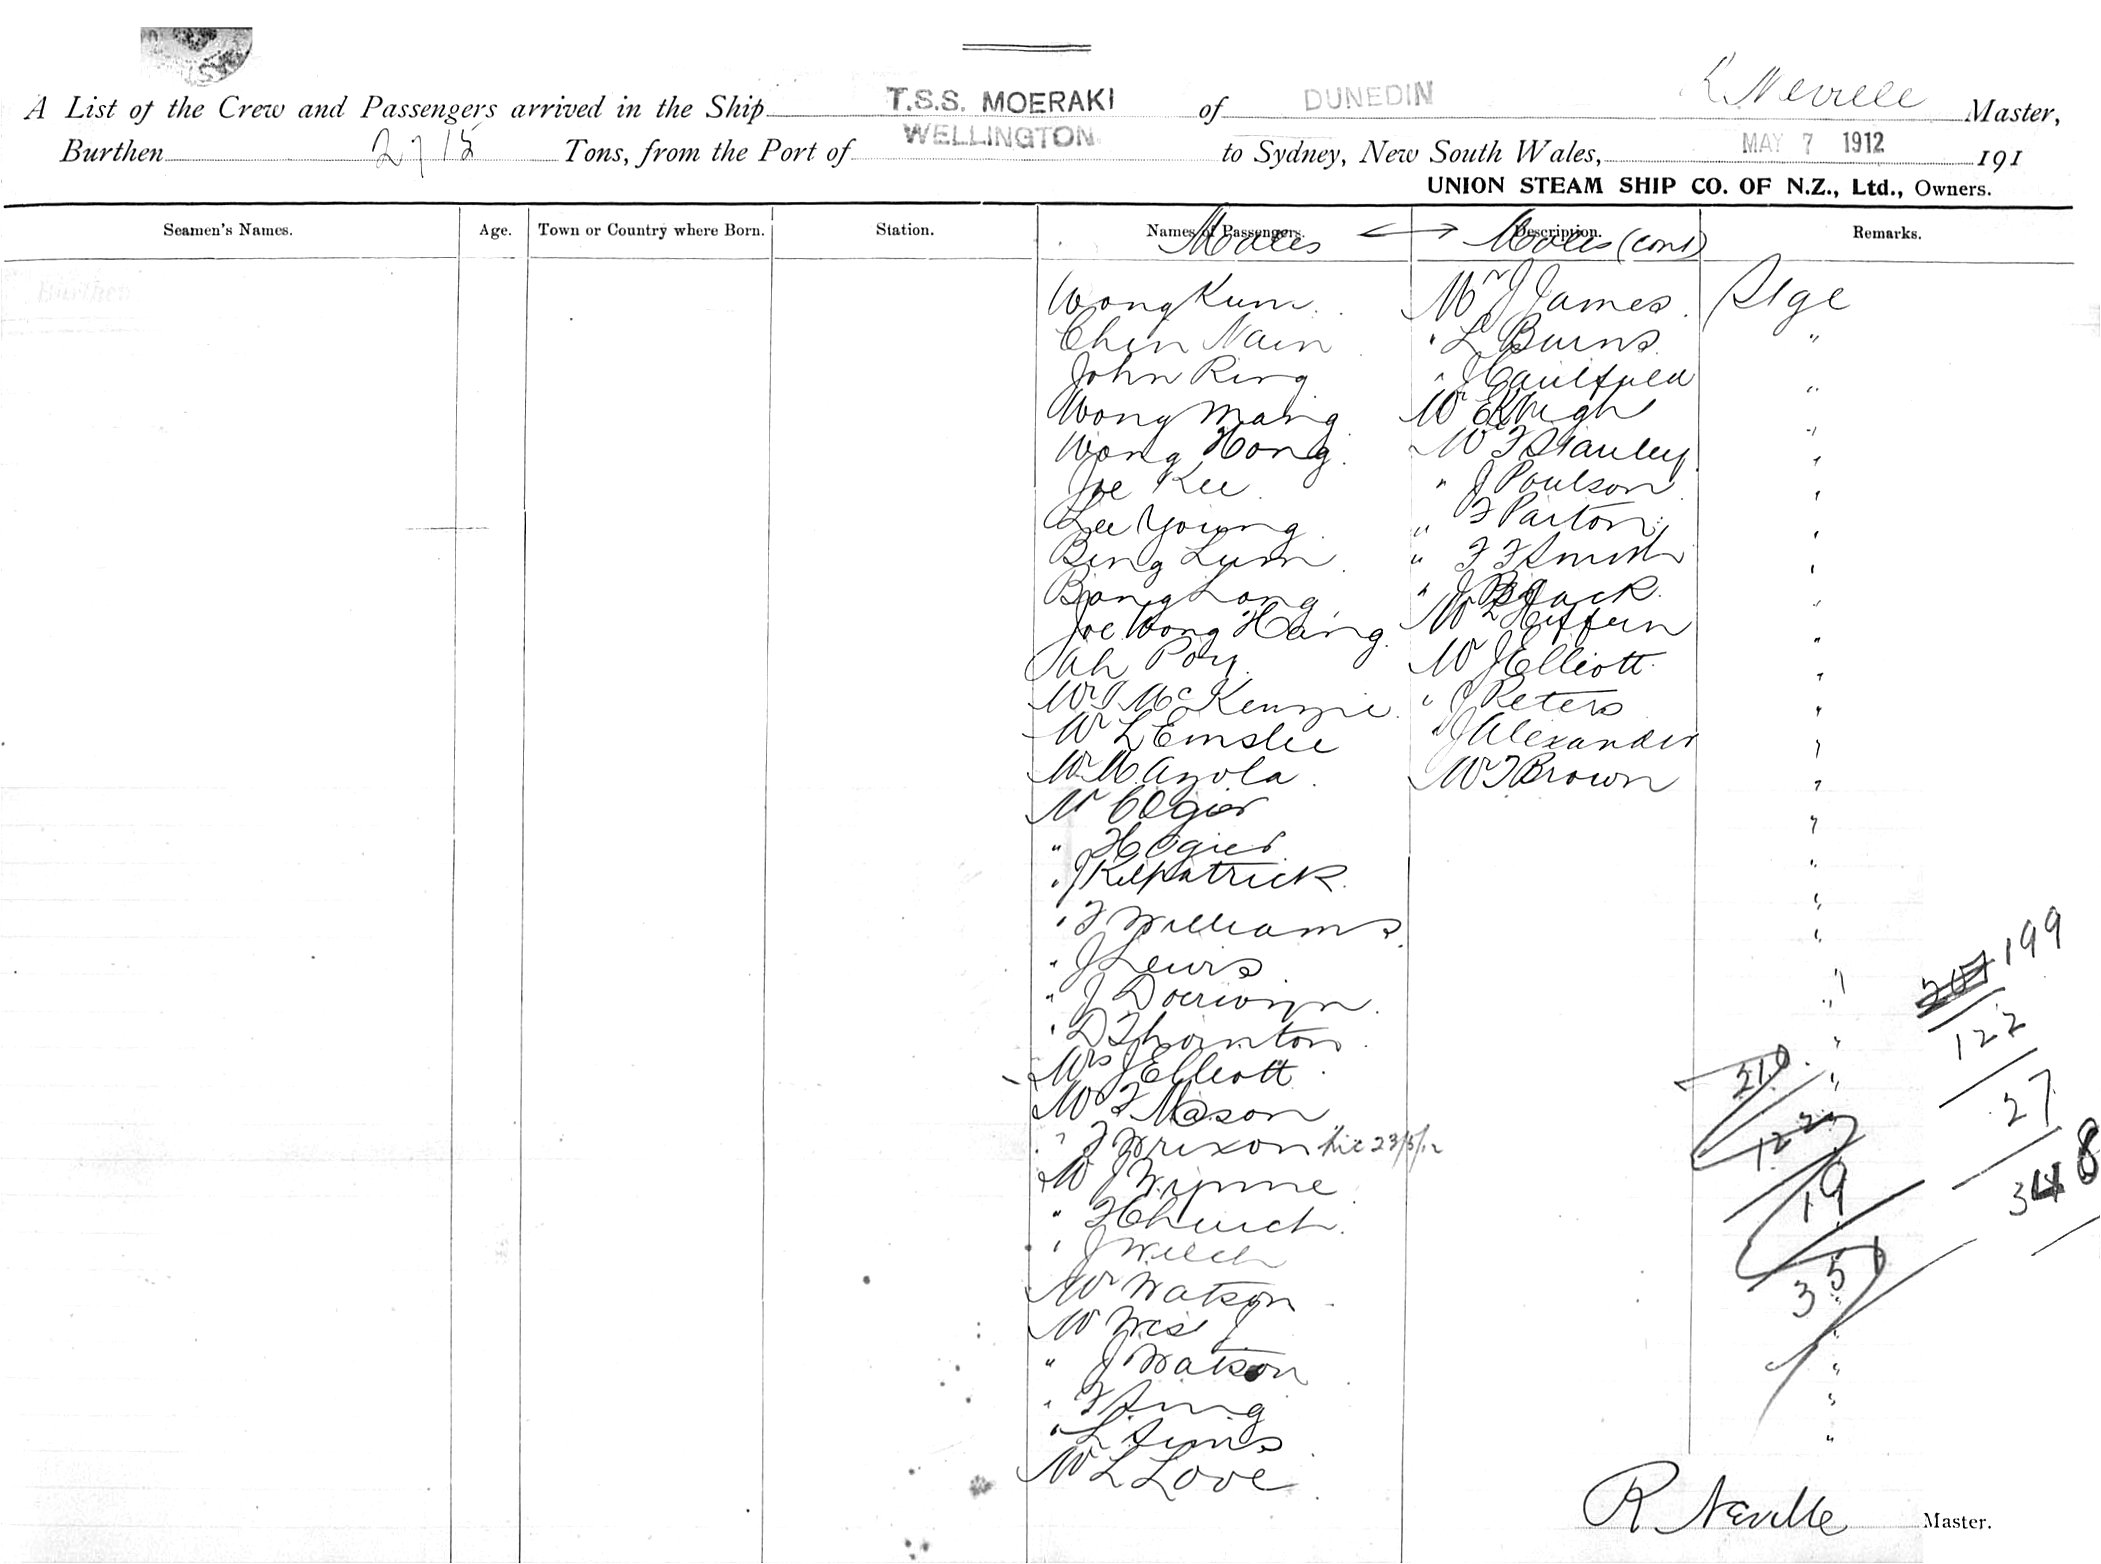 A List of the Crew and Passengers arrived in the Ship T.S.S. MOERAKI of DUNEDIN R Neville Master,
Burthen 2715 Tons, from the Port of WELLINGTON to Sydney, New South Wales, MAY 7 1912 191
UNION STEAM SHIP CO. OF N.Z., Ltd., Owners.
Seamen's Names. Age. Town or Country where Born. Station. Names of Passengers. Description. Remarks.
Males Males (cont)
Burthen
Wong Kum Mr J James Stge
Chin Nain " L Burns "
John Ring " J Caulfield "
Wong Mang Mr E Knight "
Wong Hong Mr F Stanley "
Joe Kee " J Poulson "
Lee Young " F Parton "
Bing Lum " F F Smith "
Bong Long " J Black "
Joe Wong Hang Mr L Heffern "
Ah Poy Mr J Elliott "
Mr J McKenzie " J Peters "
Mr L Emslie " J Alexander "
Mr M Azola Mr T Brown "
Mr C Ogier "
" H Ogier "
" J Kilpatrick "
" F Williams "
" J Lewis "
" J Doerwyn "
" D Thornton "
Mrs J Elliott "
Mr F Mason
" F Wrixon 23/5/12
Mr J Wynne
" F Church
" J Welch
Mr Watson "
Mr West J "
" J Watson "
" F Sing "
" L Sims "
Mr L Love
207 199
122
27
348
210
122
19
351
R Neville Master.